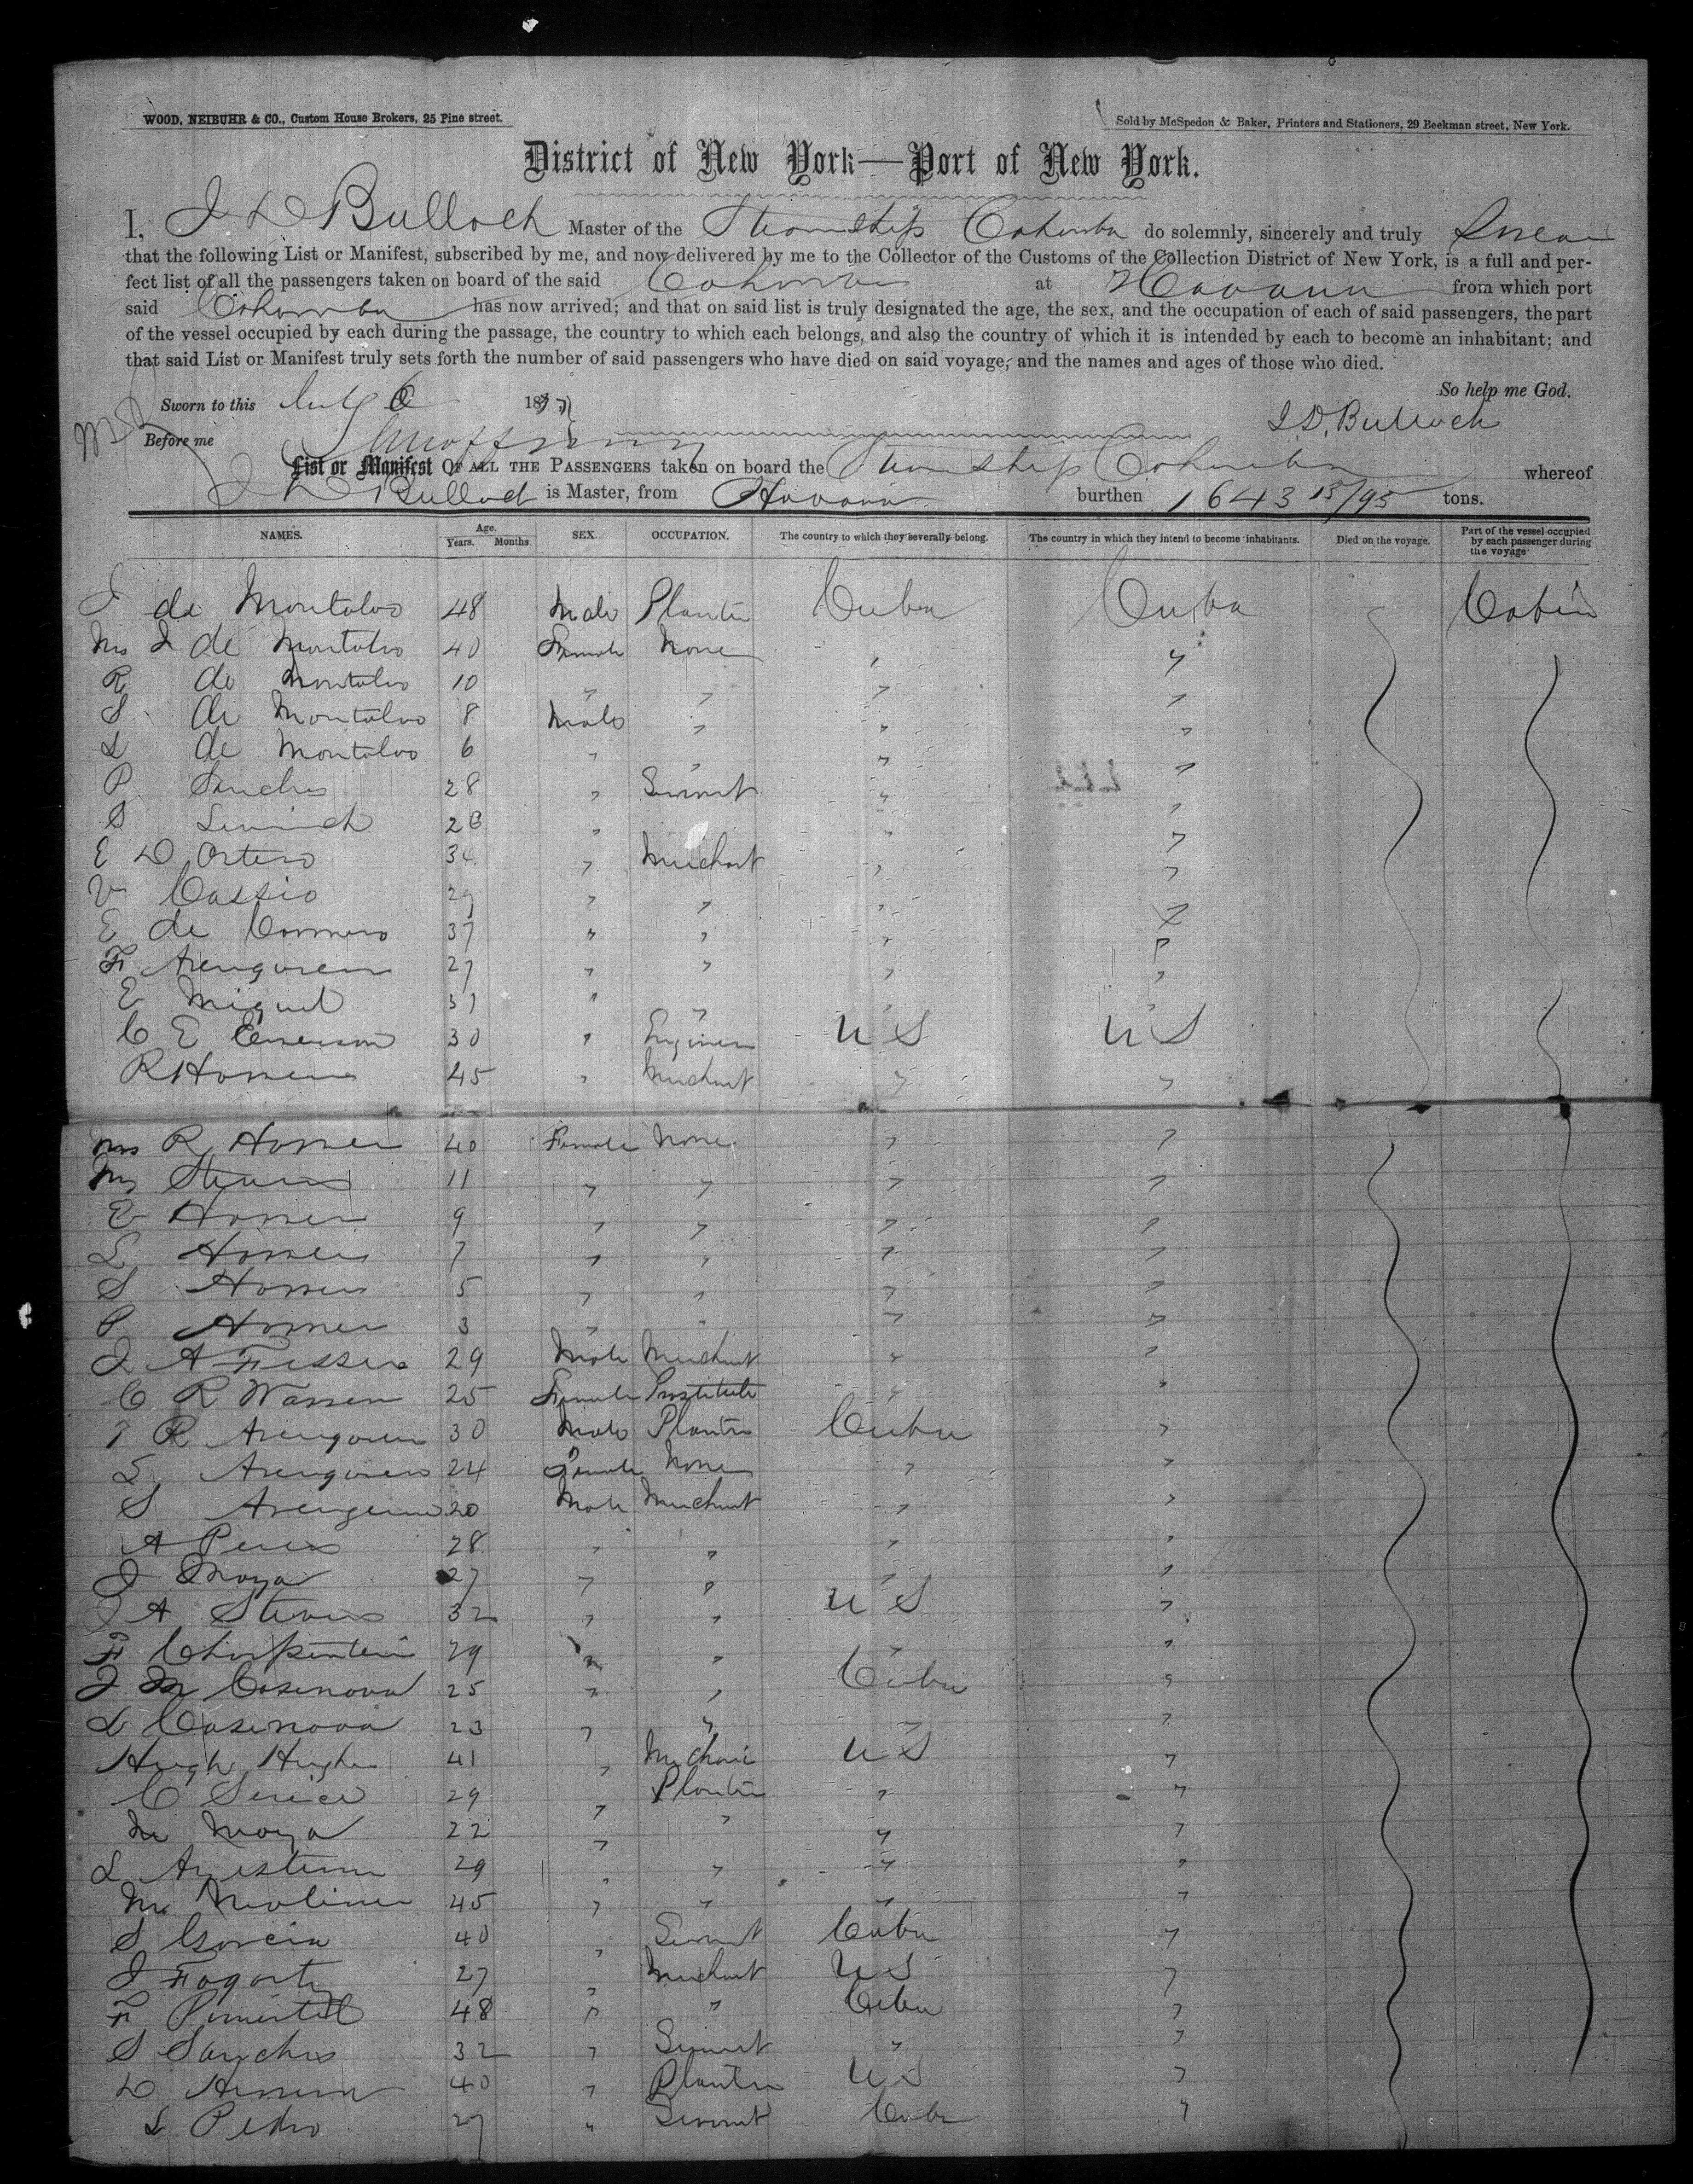 WOOD, NEIBUHR & CO., Custom House Brokers, 25 Pine street.
Sold by McSpedon & Baker, Printers and Stationers, 29 Beekman street, New York.
District of New York—Port of New York.
I, J D Bulloch Master of the Steamship Cahawba do solemnly, sincerely and truly Swear
that the following List or Manifest, subscribed by me, and now delivered by me to the Collector of the Customs of the Collection District of New York, is a full and per-
fect list of all the passengers taken on board of the said Cahawba at Havana from which port
said Cahawba has now arrived; and that on said list is truly designated the age, the sex, and the occupation of each of said passengers, the part
of the vessel occupied by each during the passage, the country to which each belongs, and also the country of which it is intended by each to become an inhabitant; and
that said List or Manifest truly sets forth the number of said passengers who have died on said voyage, and the names and ages of those who died.
So help me God.
Sworn to this July 6 185
J. D. Bulloch
Before me
List or Manifest OF ALL THE PASSENGERS taken on board the Steamship Cahawba whereof
J D Bulloch is Master, from Havana burthen 1643 15/95 tons.
NAMES. Age. Years. Months. SEX. OCCUPATION. The country to which they severally belong. The country in which they intend to become inhabitants. Died on the voyage. Part of the vessel occupied by each passenger during the voyage
J de Montalvo 48 Male Planter Cuba Cuba Cabin
Mrs J de Montalvo 40 Female None " "
R de Montalvo 10 " " " "
S de Montalvo 8 Male " " "
L de Montalvo 6 " " " "
P Sanches 28 " Servant " "
S 28 " " "
E D Ortero 34 " Merchant " "
V Cassio 29 " " " "
E de 37 " " " "
F 27 " " " "
E Miguel 31 " " " "
C E Emerson 30 " Engineer U S U S
R Homer 45 " Merchant " "
Mrs R Homer 40 Female None " "
M 11 " " " "
E Homer 9 " " " "
L Homer 7 " " " "
S Homer 5 " " " "
P Homer 3 " " " "
J A Fesser 29 Male Merchant " "
C R Warren 25 Female Prostitute " "
R 30 Male Planter Cuba "
L 24 Female None " "
S 20 Male Merchant " "
A Perez 28 " " " "
J Moya 27 " " " "
J A Stevens 32 " " U S "
F Charpentier 29 " " " "
J M Casanova 25 " " Cuba "
L Casanova 23 " " " "
Hugh Hughes 41 " Mechanic U S "
C 29 " Planter " "
M Moya 22 " " " "
L 29 " " " "
M Moliner 45 " " " "
S Garcia 40 " Servant Cuba "
J Fogarty 27 " Merchant U S "
F Pimentel 48 " " Cuba "
S Sanches 32 " Servant " "
D Herrera 40 " Planter U S "
L Pedro 27 " Servant Cuba "